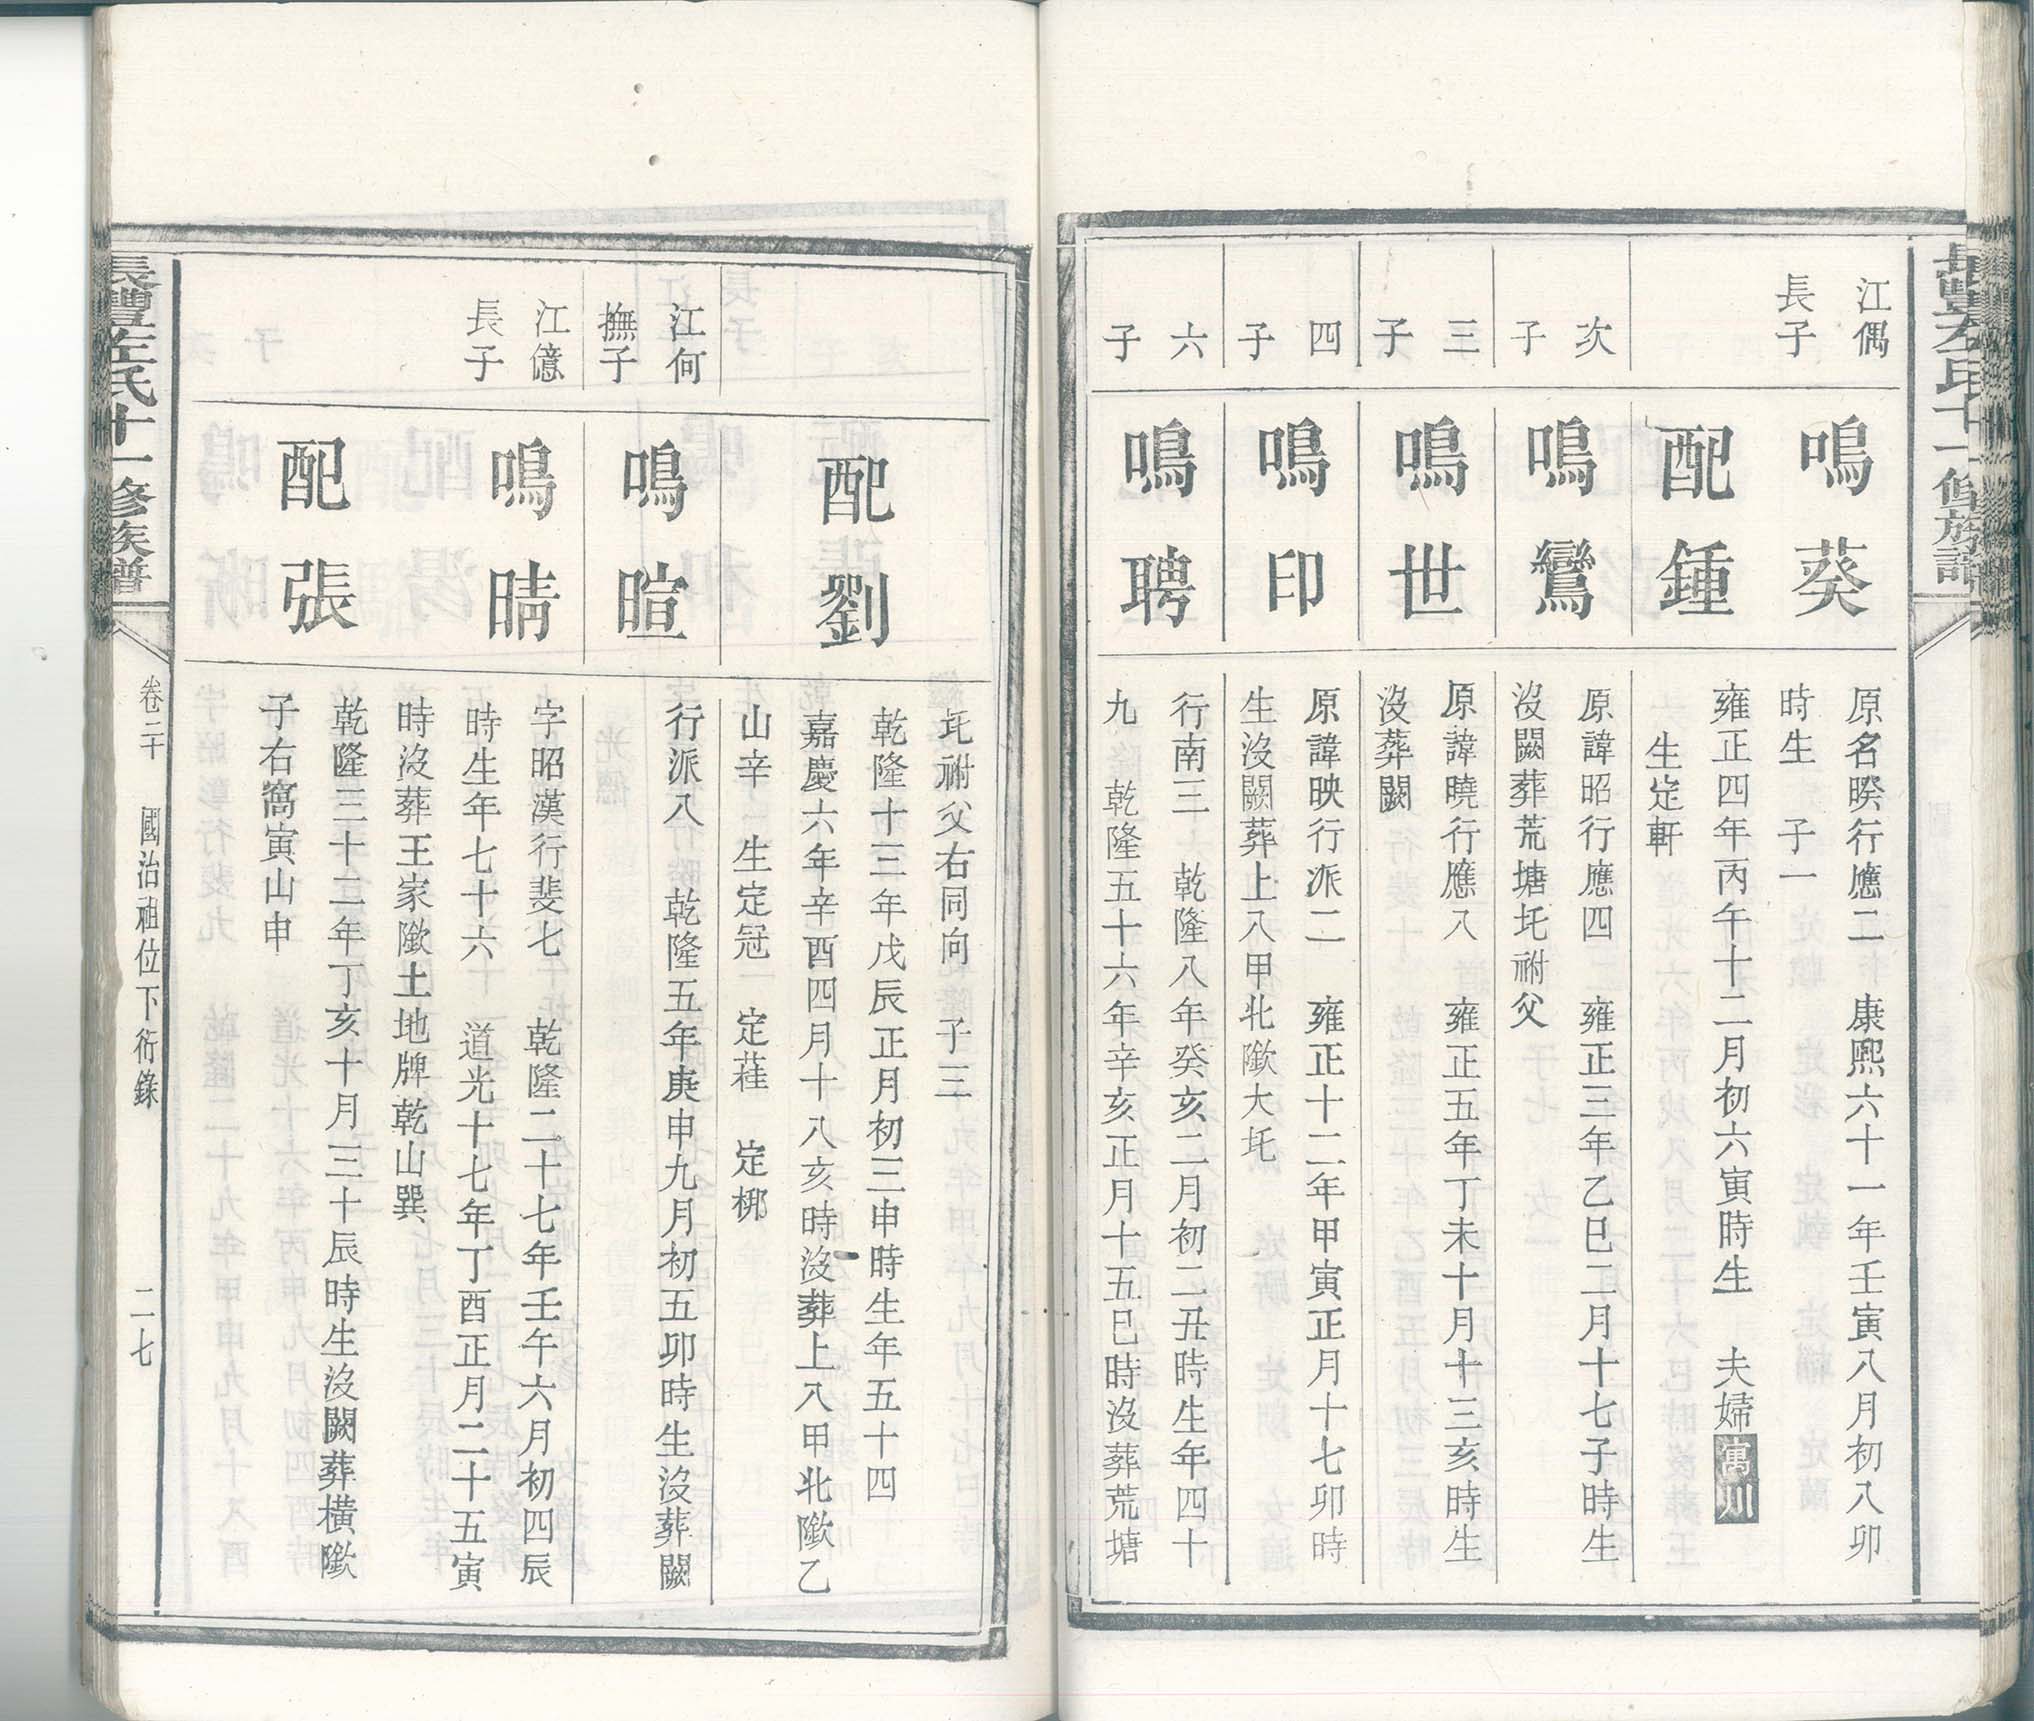 長豐左氏十一修族譜
江偶
長子
鳴葵
原名暌行應二 康熙六十一年壬寅八月初八卯
時生 子一
配鍾
雍正四年丙午十二月初六寅時生 夫婦寓川
生定軒
次子
鳴鸞
原諱昭行應四 雍正三年乙巳二月十七子時生
沒闕葬荒塘坉祔父
三子
鳴世
原諱曉行應八 雍正五年丁未十月十三亥時生
沒葬闕
四子
鳴印
原諱映行派二 雍正十二年甲寅正月十七卯時
生沒闕葬上八甲北隞大坉
六子
鳴聘
行南三 乾隆八年癸亥二月初二丑時生年四十
九 乾隆五十六年辛亥正月十五巳時沒葬荒塘
坉祔父右同向 子三
配劉
乾隆十三年戊辰正月初三申時生年五十四
嘉慶六年辛酉四月十八亥時沒葬上八甲北隞乙
山辛 生定冠 定蓕 定梛
江何
撫子
鳴暄
行派八 乾隆五年庚申九月初五卯時生沒葬闕
江億
長子
鳴晴
字昭漢行斐七 乾隆二十七年壬午六月初四辰
時生年七十六 道光十七年丁酉正月二十五寅
時沒葬王家隞土地牌乾山巽
配張
乾隆三十二年丁亥十月三十辰時生沒闕葬橫隞
子右窩寅山申
長豐左氏十一修族譜
卷二十 國治祖位下衍錄 二七